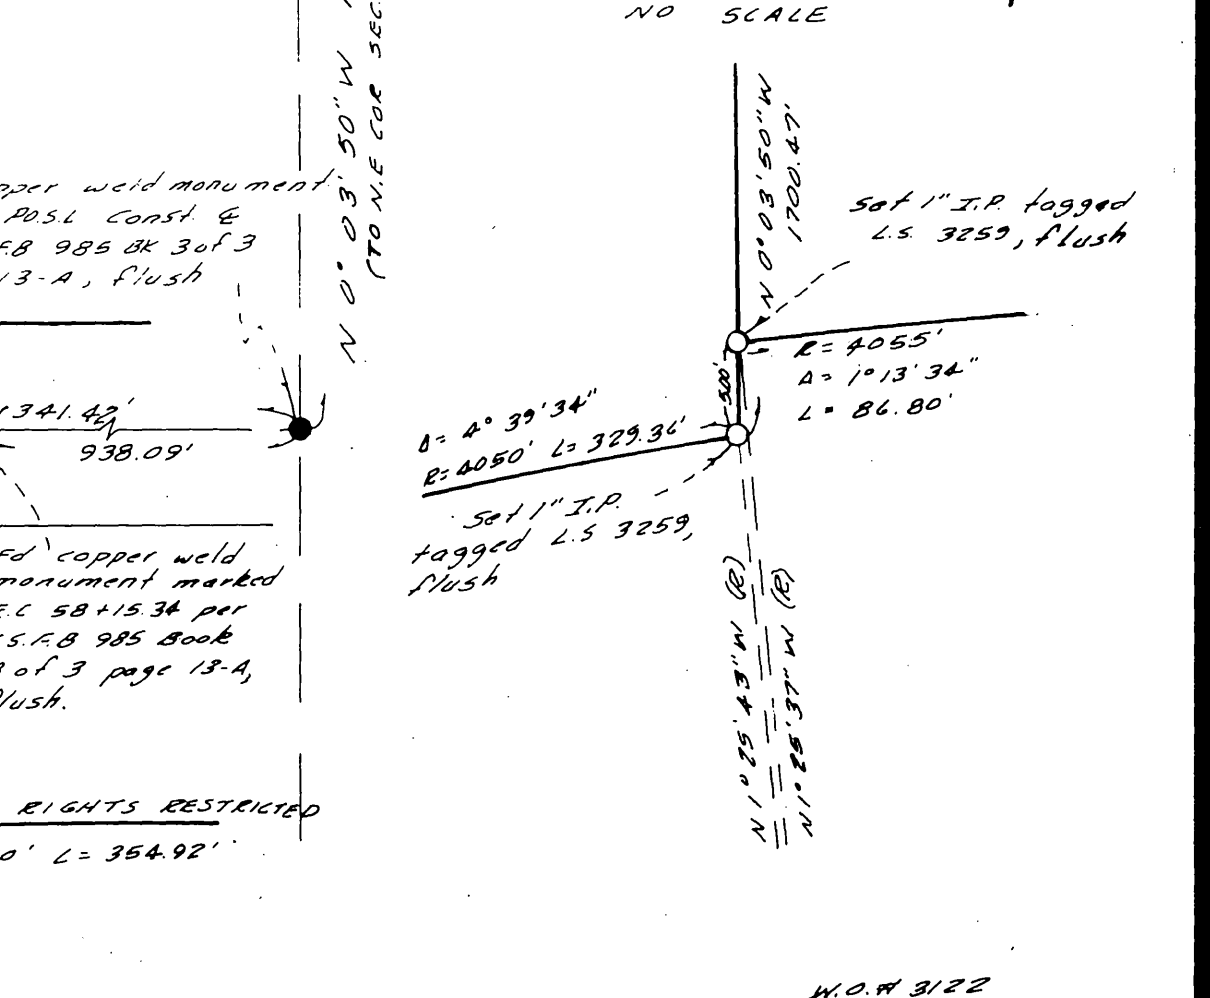 NO SCALE
N 0° 03' 50" W
(TO N.E COR SEC.
weld monument
P.O.S.L Const. ℄
F.B 985 BK 3 of 3
13-A, flush
1341.42'
938.09'
Fd copper weld
monument marked
E.C 58+15.34 per
S.F.B 985 Book
3 of 3 page 13-A,
flush.
RIGHTS RESTRICTED
0' L= 354.92'
N 0° 03' 50" W
1700.47'
Set 1" I.P. tagged
L.S. 3259, flush
R= 4055'
Δ= 1° 13' 34"
L= 86.80'
5.00'
Δ= 4° 39' 34"
R= 4050' L= 329.36'
Set 1" I.P.
tagged L.S 3259,
flush
N 1° 25' 43" W (R)
N 1° 25' 37" W (R)
W.O.# 3122